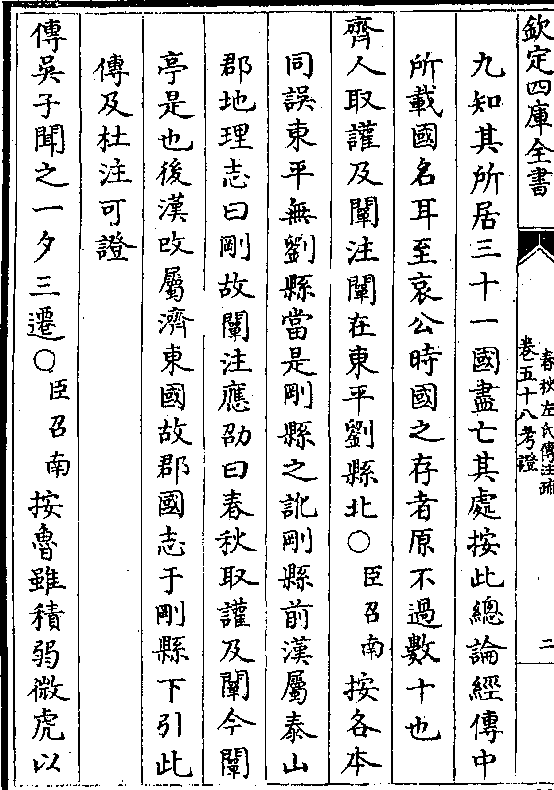 欽定四庫全書
春秋左氏傳注疏
卷五十八考證
二
九知其所居三十一國盡亡其處按此總論經傳中
所載國名耳至哀公時國之存者原不過數十也
齊人取讙及闡注闡在東平劉縣北○臣召南按各本
同誤東平無劉縣當是剛縣之訛剛縣前漢屬泰山
郡地理志曰剛故闡注應劭曰春秋取讙及闡今闡
亭是也後漢改屬濟東國故郡國志于剛縣下引此
傳及杜注可證
傳吳子聞之一夕三遷○臣召南按魯雖積弱微虎以